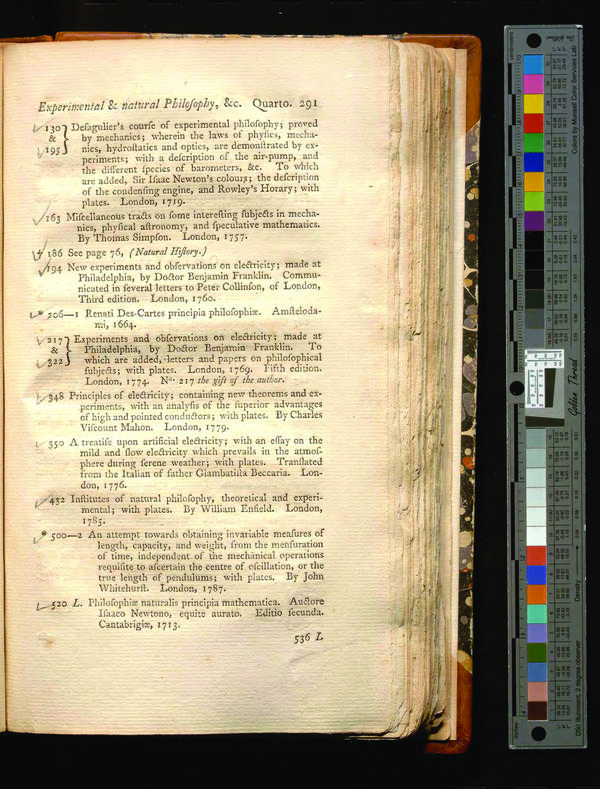 Experimental & natural Philoſophy, &c. Quarto. 291
130 } Deſagulier's courſe of experimental philoſophy; proved
& by mechanics; wherein the laws of phyſics, mecha-
195 } nics, hydroſtatics and optics, are demonſtrated by ex-
periments; with a deſcription of the air-pump, and
the different ſpecies of barometers, &c. To which
are added, Sir Iſaac Newton's colours; the deſcription
of the condenſing engine, and Rowley's Horary; with
plates. London, 1719.
163 Miſcellaneous tracts on ſome intereſting ſubjects in mecha-
nics, phyſical aſtronomy, and ſpeculative mathematics.
By Thomas Simpſon. London, 1757.
186 See page 76, (Natural Hiſtory.)
194 New experiments and obſervations on electricity; made at
Philadelphia, by Doctor Benjamin Franklin. Commu-
nicated in ſeveral letters to Peter Collinſon, of London,
Third edition. London, 1760.
* 206—1 Renati Des-Cartes principia philoſophiæ. Amſteloda-
mi, 1664.
217 } Experiments and obſervations on electricity; made at
& Philadelphia, by Doctor Benjamin Franklin. To
322 } which are added, letters and papers on philoſophical
ſubjects; with plates. London, 1769. Fifth edition.
London, 1774. No. 217 the gift of the author.
348 Principles of electricity; containing new theorems and ex-
periments, with an analyſis of the ſuperior advantages
of high and pointed conductors; with plates. By Charles
Viſcount Mahon. London, 1779.
350 A treatiſe upon artificial electricity; with an eſſay on the
mild and ſlow electricity which prevails in the atmoſ-
phere during ſerene weather; with plates. Tranſlated
from the Italian of father Giambatiſta Beccaria. Lon-
don, 1776.
432 Inſtitutes of natural philoſophy, theoretical and experi-
mental; with plates. By William Enfield. London,
1785.
* 500—2 An attempt towards obtaining invariable meaſures of
length, capacity, and weight, from the menſuration
of time, independent of the mechanical operations
requiſite to aſcertain the centre of oſcillation, or the
true length of pendulums; with plates. By John
Whitehurſt. London, 1787.
520 L. Philoſophiæ naturalis principia mathematica. Auctore
Iſaaco Newtono, equite aurato. Editio ſecunda.
Cantabrigiæ, 1713.
536 L
Colors by Munsell Color Services Lab
Golden Thread
Density
D50 Illuminant, 2 degree observer